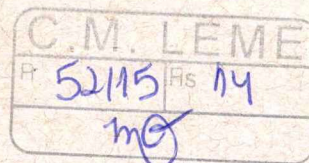 C.M. LEME
P 52/15 Fls 14